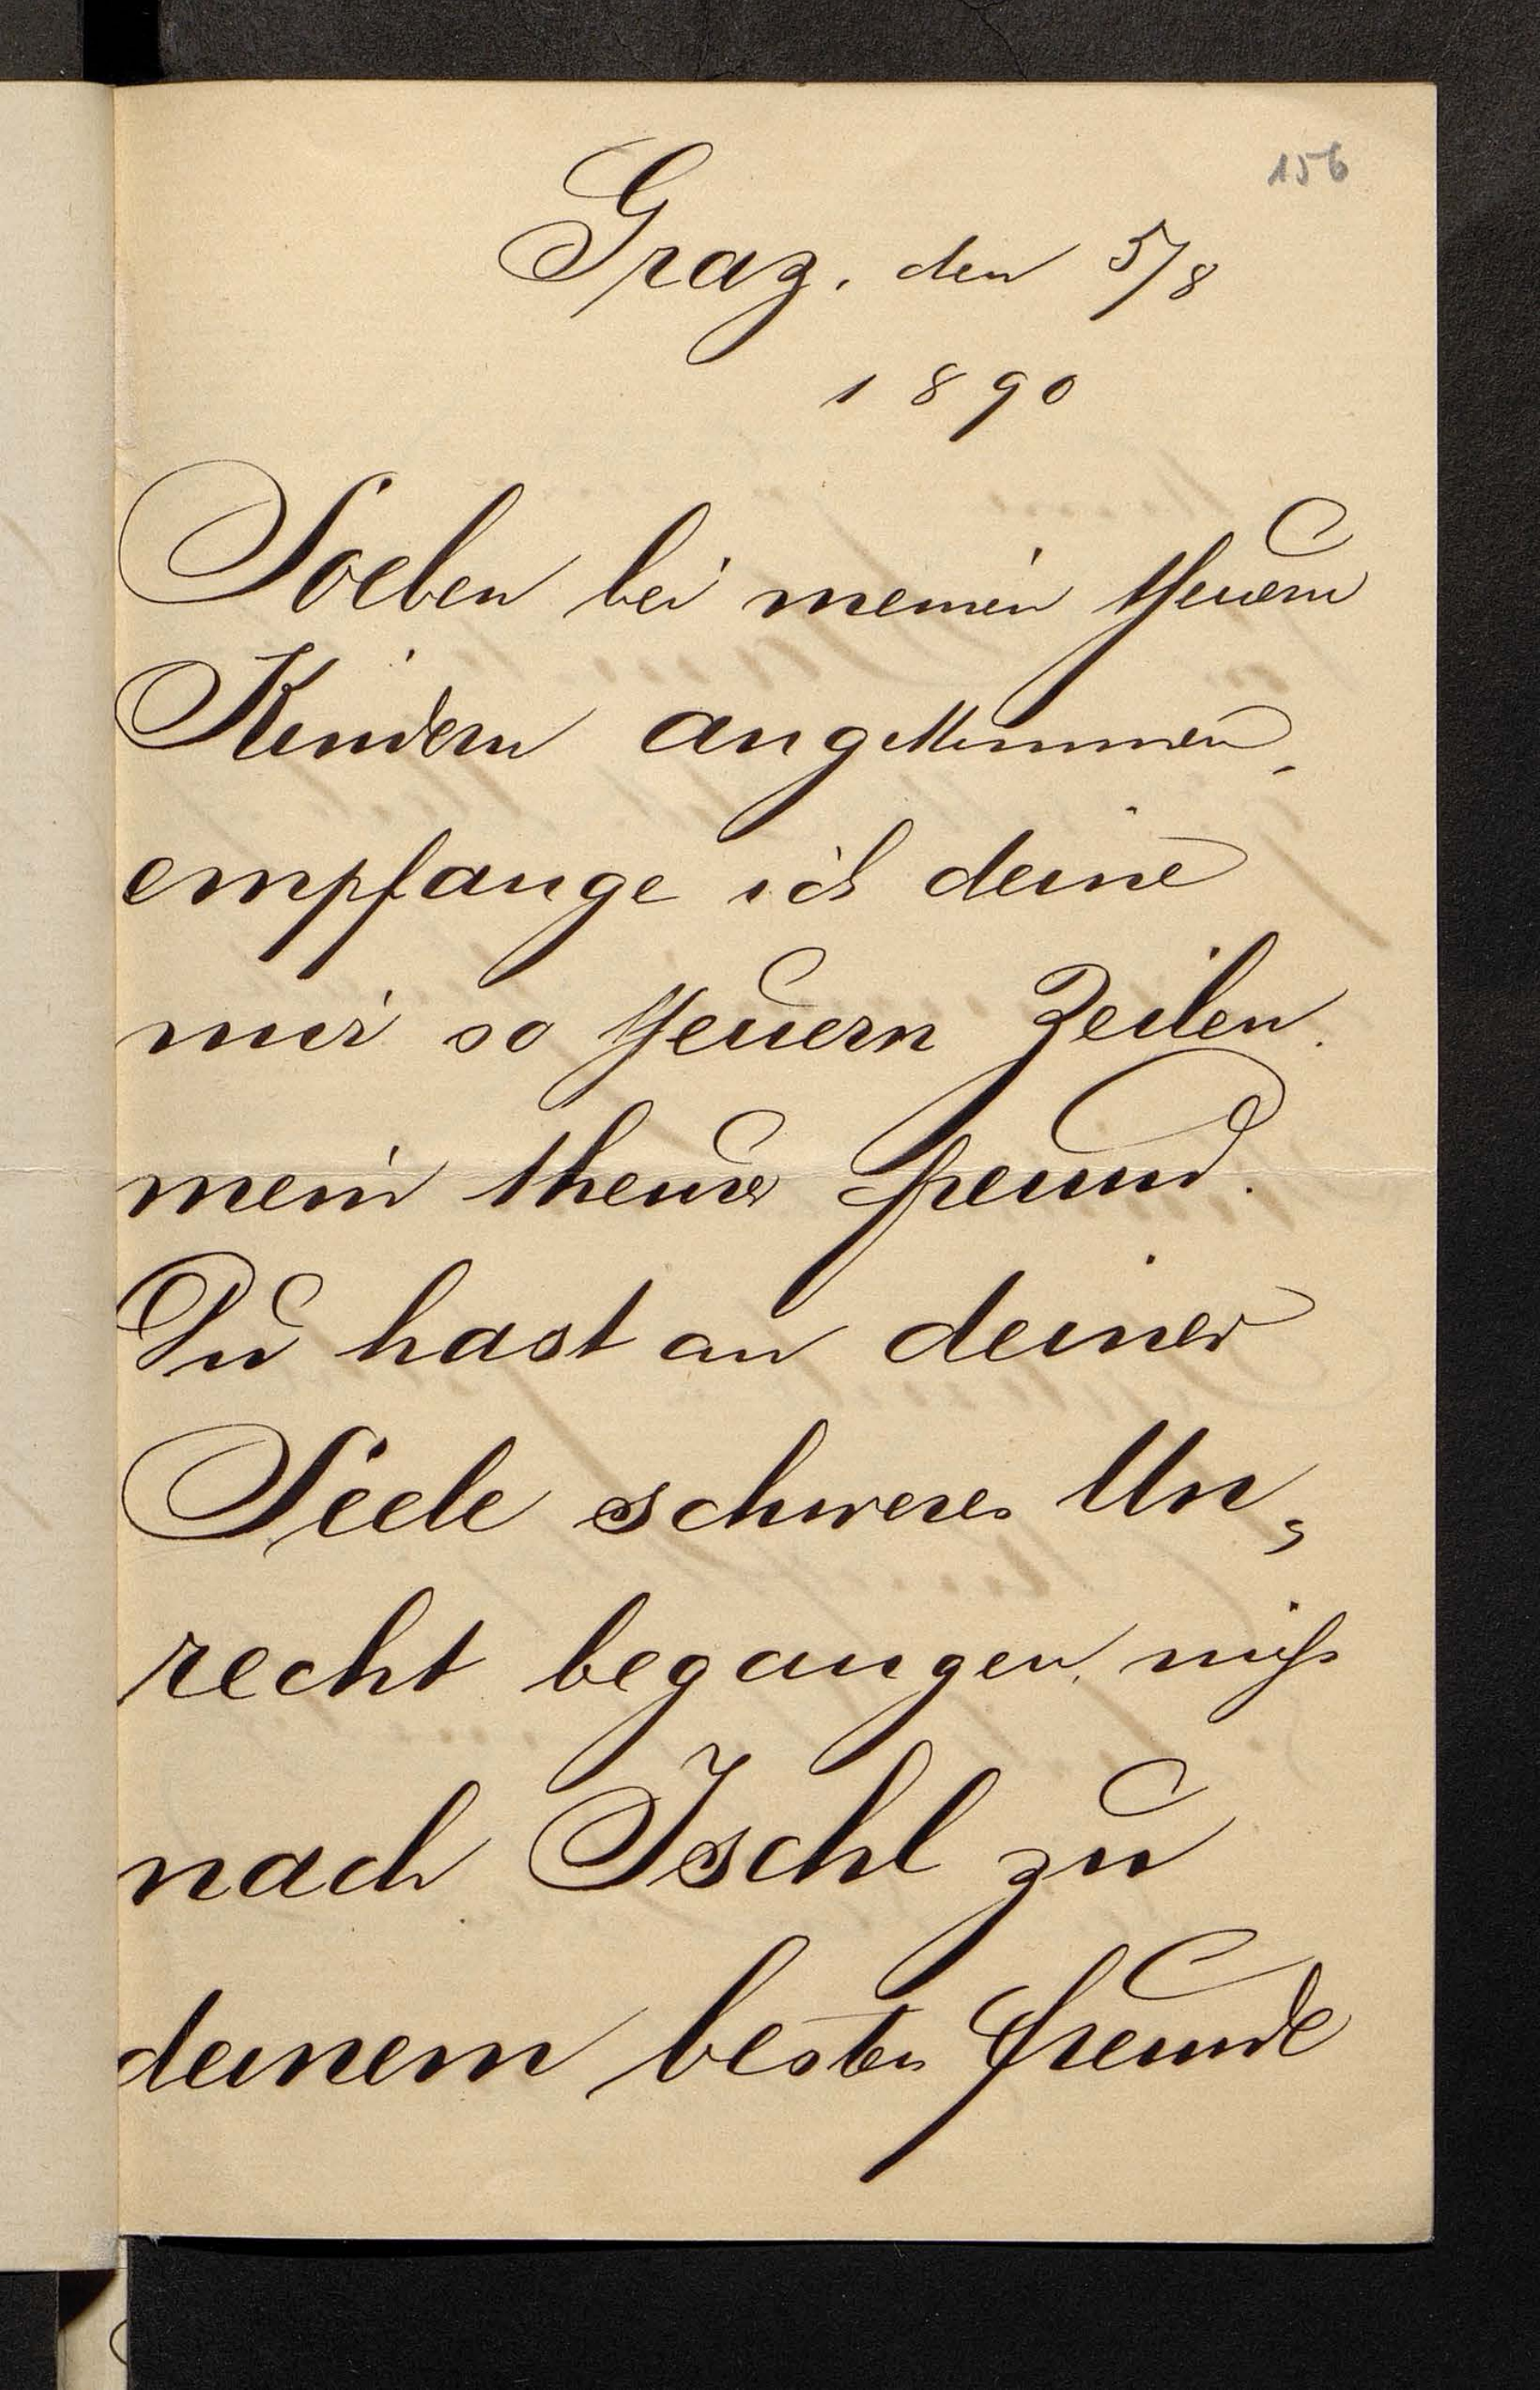 156
Graz, den 5/8
1890
Soeben bei meinen theuern
Kindern angekommen,
empfange ich deine
mir so theuern Zeilen,
mein theurer Freund.
Du hast an deiner
Seele schweres Un,
recht begangen, nicht
nach Ischl zu
deinem besten Freunde